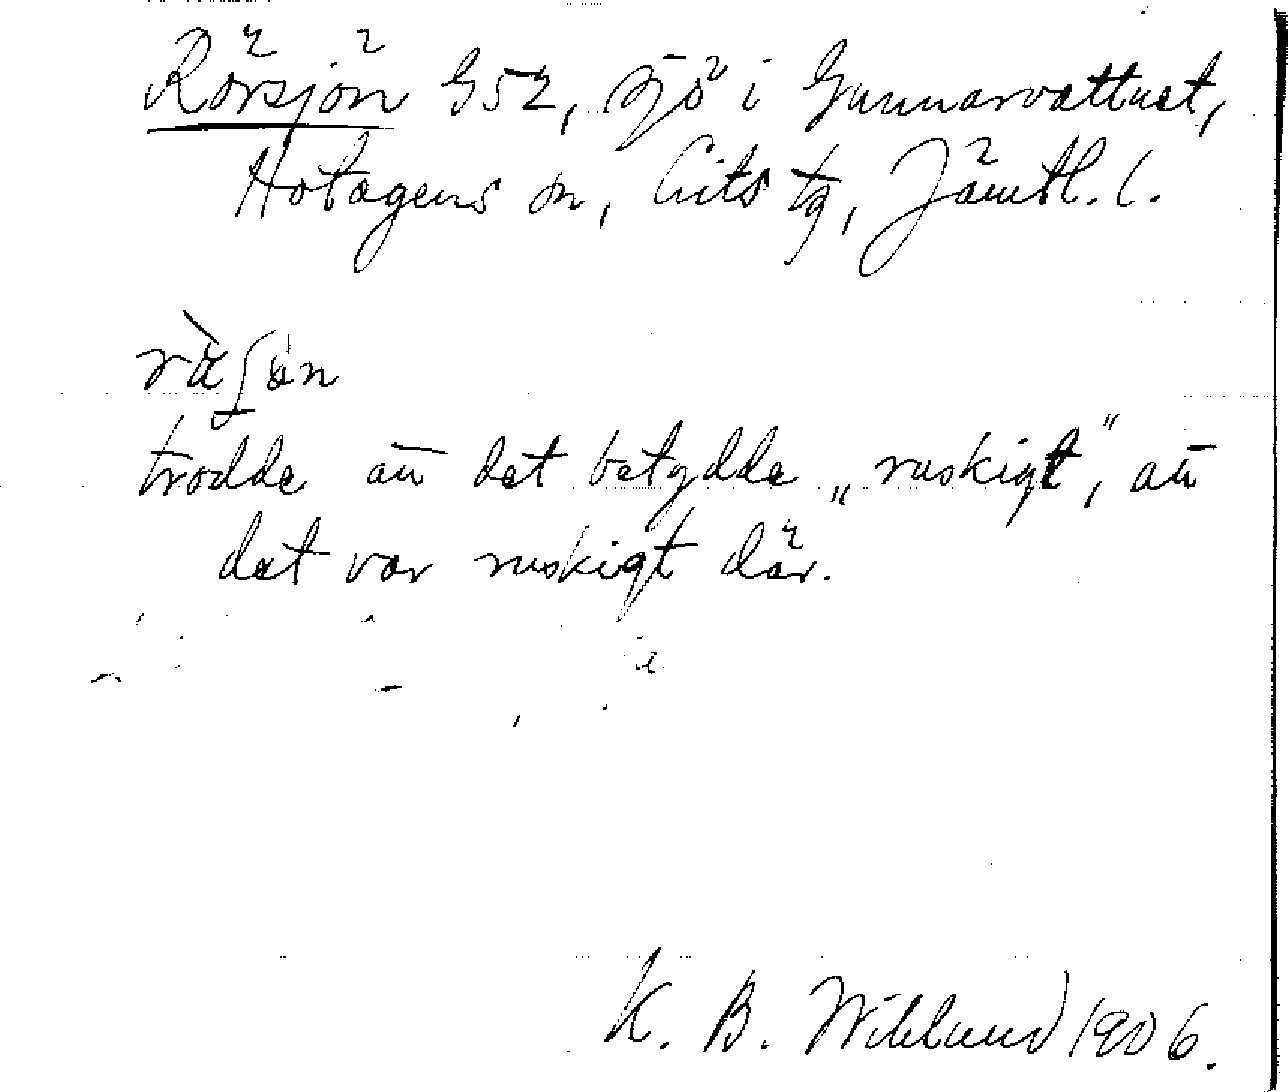 Rörsjön G52, sjö i Gunnarvattnet,
Hotagens sn, Lits tg, Jämtl. l.
trodde att det betydde „ruskigt”, att
det var ruskigt där.
K. B. Wiklund 1906.